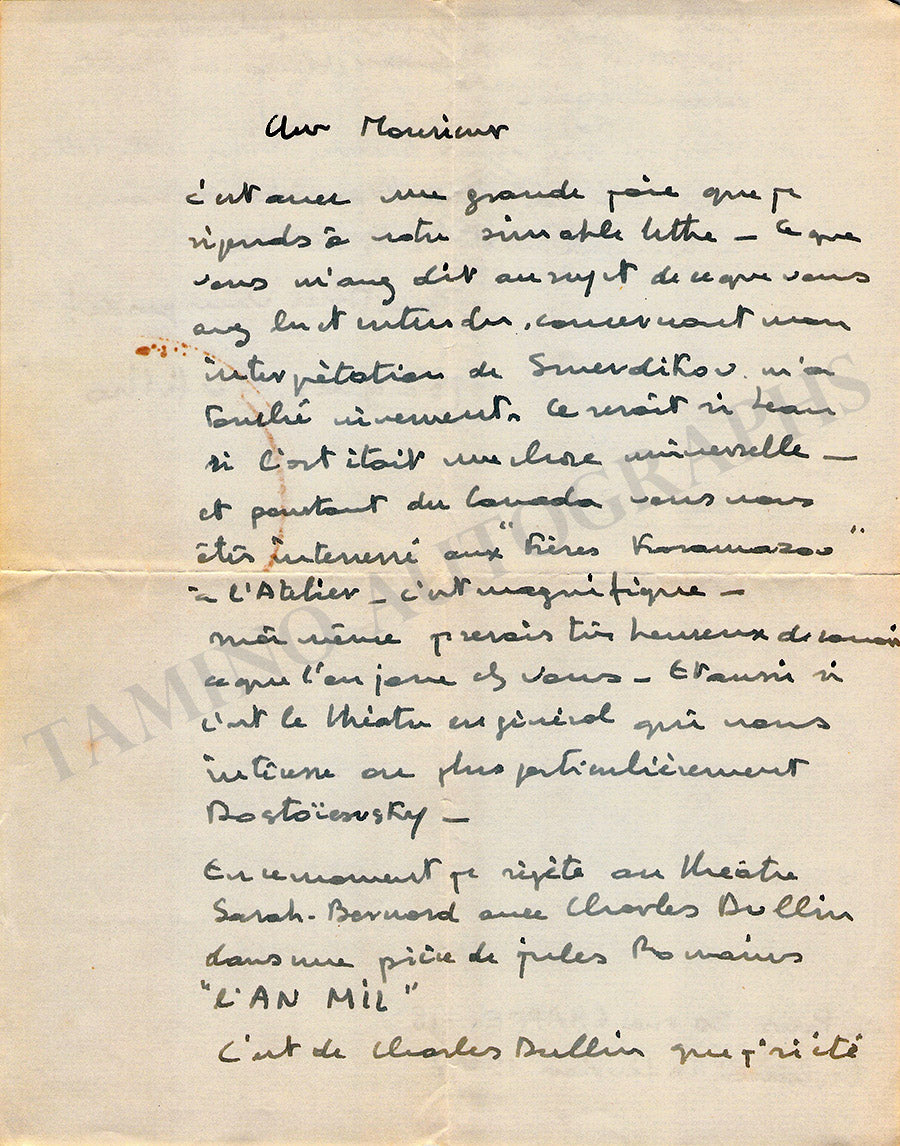 Cher Monsieur
c'est avec une grande joie que je
réponds à votre aimable lettre – Ce que
vous m'avez dit au sujet de ce que vous
avez lu et entendu, concernant mon
interprétation de Smerdikov m'a
touché vivement. Ce serait si beau
si l'art était une chose universelle –
et pourtant du Canada vous vous
êtes interressé aux "Frères Karamazov"
à l'Atelier – c'est magnifique –
moi même je serais très heureux de savoir
ce que l'on joue chez vous – Et aussi si
c'est le théatre en général qui vous
intéresse ou plus particulièrement
Dostoïesvsky –
En ce moment je répète au théâtre
Sarah-Bernard avec Charles Dullin
dans une pièce de jules Romains
"L'AN MIL"
C'est de Charles Dullin que j'ai été
TAMINO AUTOGRAPHS